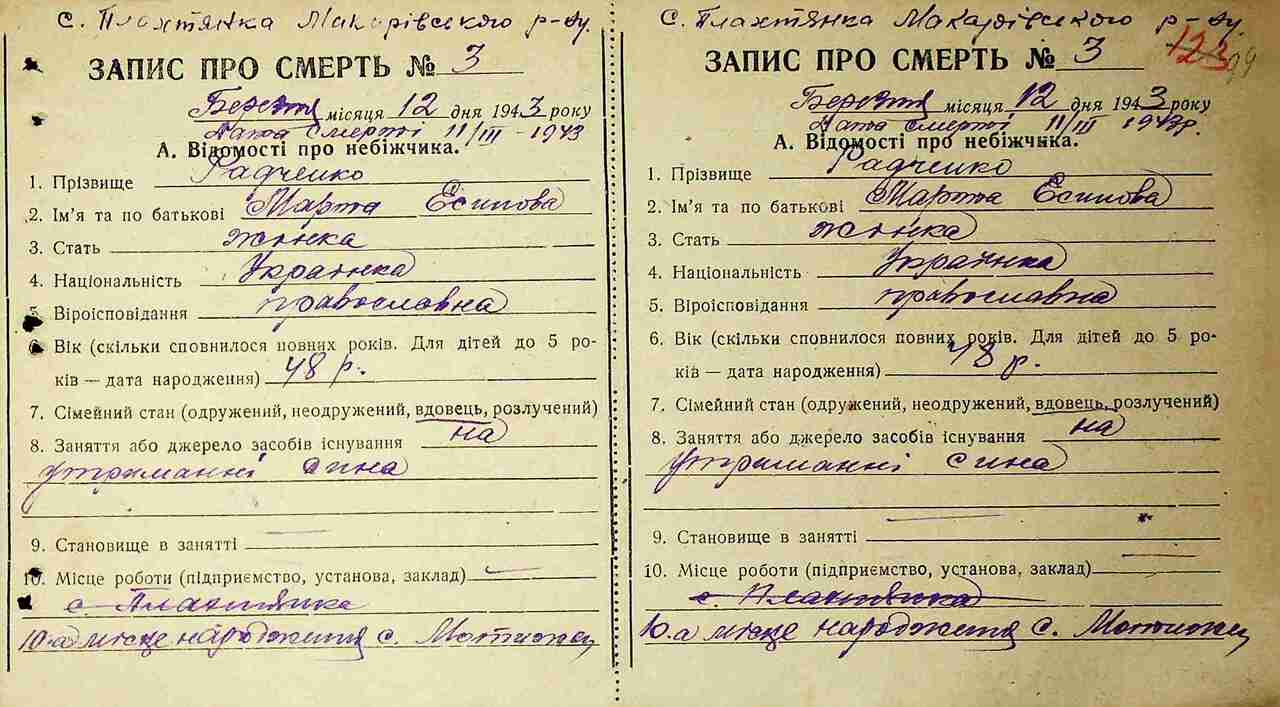 с. Плахтянка Макарівського р-ну.
ЗАПИС ПРО СМЕРТЬ № 3
Березня місяця 12 дня 1943 року
Дата смерті 11/III - 1943
А. Відомості про небіжчика.
1. Прізвище Радченко
2. Ім'я та по батькові Марта Есипова
3. Стать жінка
4. Національність Українка
5. Віроісповідання православна
6. Вік (скільки сповнилося повних років. Для дітей до 5 ро-
ків — дата народження) 48 р.
7. Сімейний стан (одружений, неодружений, вдовець, розлучений)
8. Заняття або джерело засобів існування на
утриманні сина
9. Становище в занятті —
10. Місце роботи (підприємство, установа, заклад) —
с. Плахтянка
10.а місце народження с. Мотижин
с. Плахтянка Макарівського р-ну
123
99
ЗАПИС ПРО СМЕРТЬ № 3
Березня місяця 12 дня 1943 року
Дата смерті 11/III 1943р.
А. Відомості про небіжчика.
1. Прізвище Радченко
2. Ім'я та по батькові Марта Есипова
3. Стать жінка
4. Національність Українка
5. Віроісповідання православна
6. Вік (скільки сповнилося повних років. Для дітей до 5 ро-
ків — дата народження) 48 р.
7. Сімейний стан (одружений, неодружений, вдовець, розлучений)
8. Заняття або джерело засобів існування на
утриманні сина
9. Становище в занятті —
10. Місце роботи (підприємство, установа, заклад) —
с. Плахтянка
10.а місце народження с. Мотижин